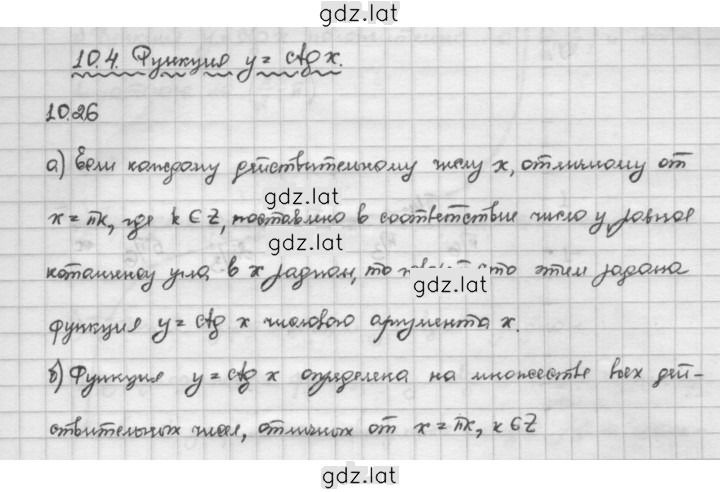 gdz.lat
10.4. Функция y = ctg x.
10.26
а) Если каждому действительному числу x, отличному от
x = πk, где k ∈ Z, поставлено в соответствие число y, равное
gdz.lat
gdz.lat
котангенсу угла в x радиан, то говорят что этим задана
gdz.lat
функция y = ctg x числового аргумента x.
б) Функция y = ctg x определена на множестве всех дей-
ствительных чисел, отличных от x = πk, k ∈ Z
gdz.lat